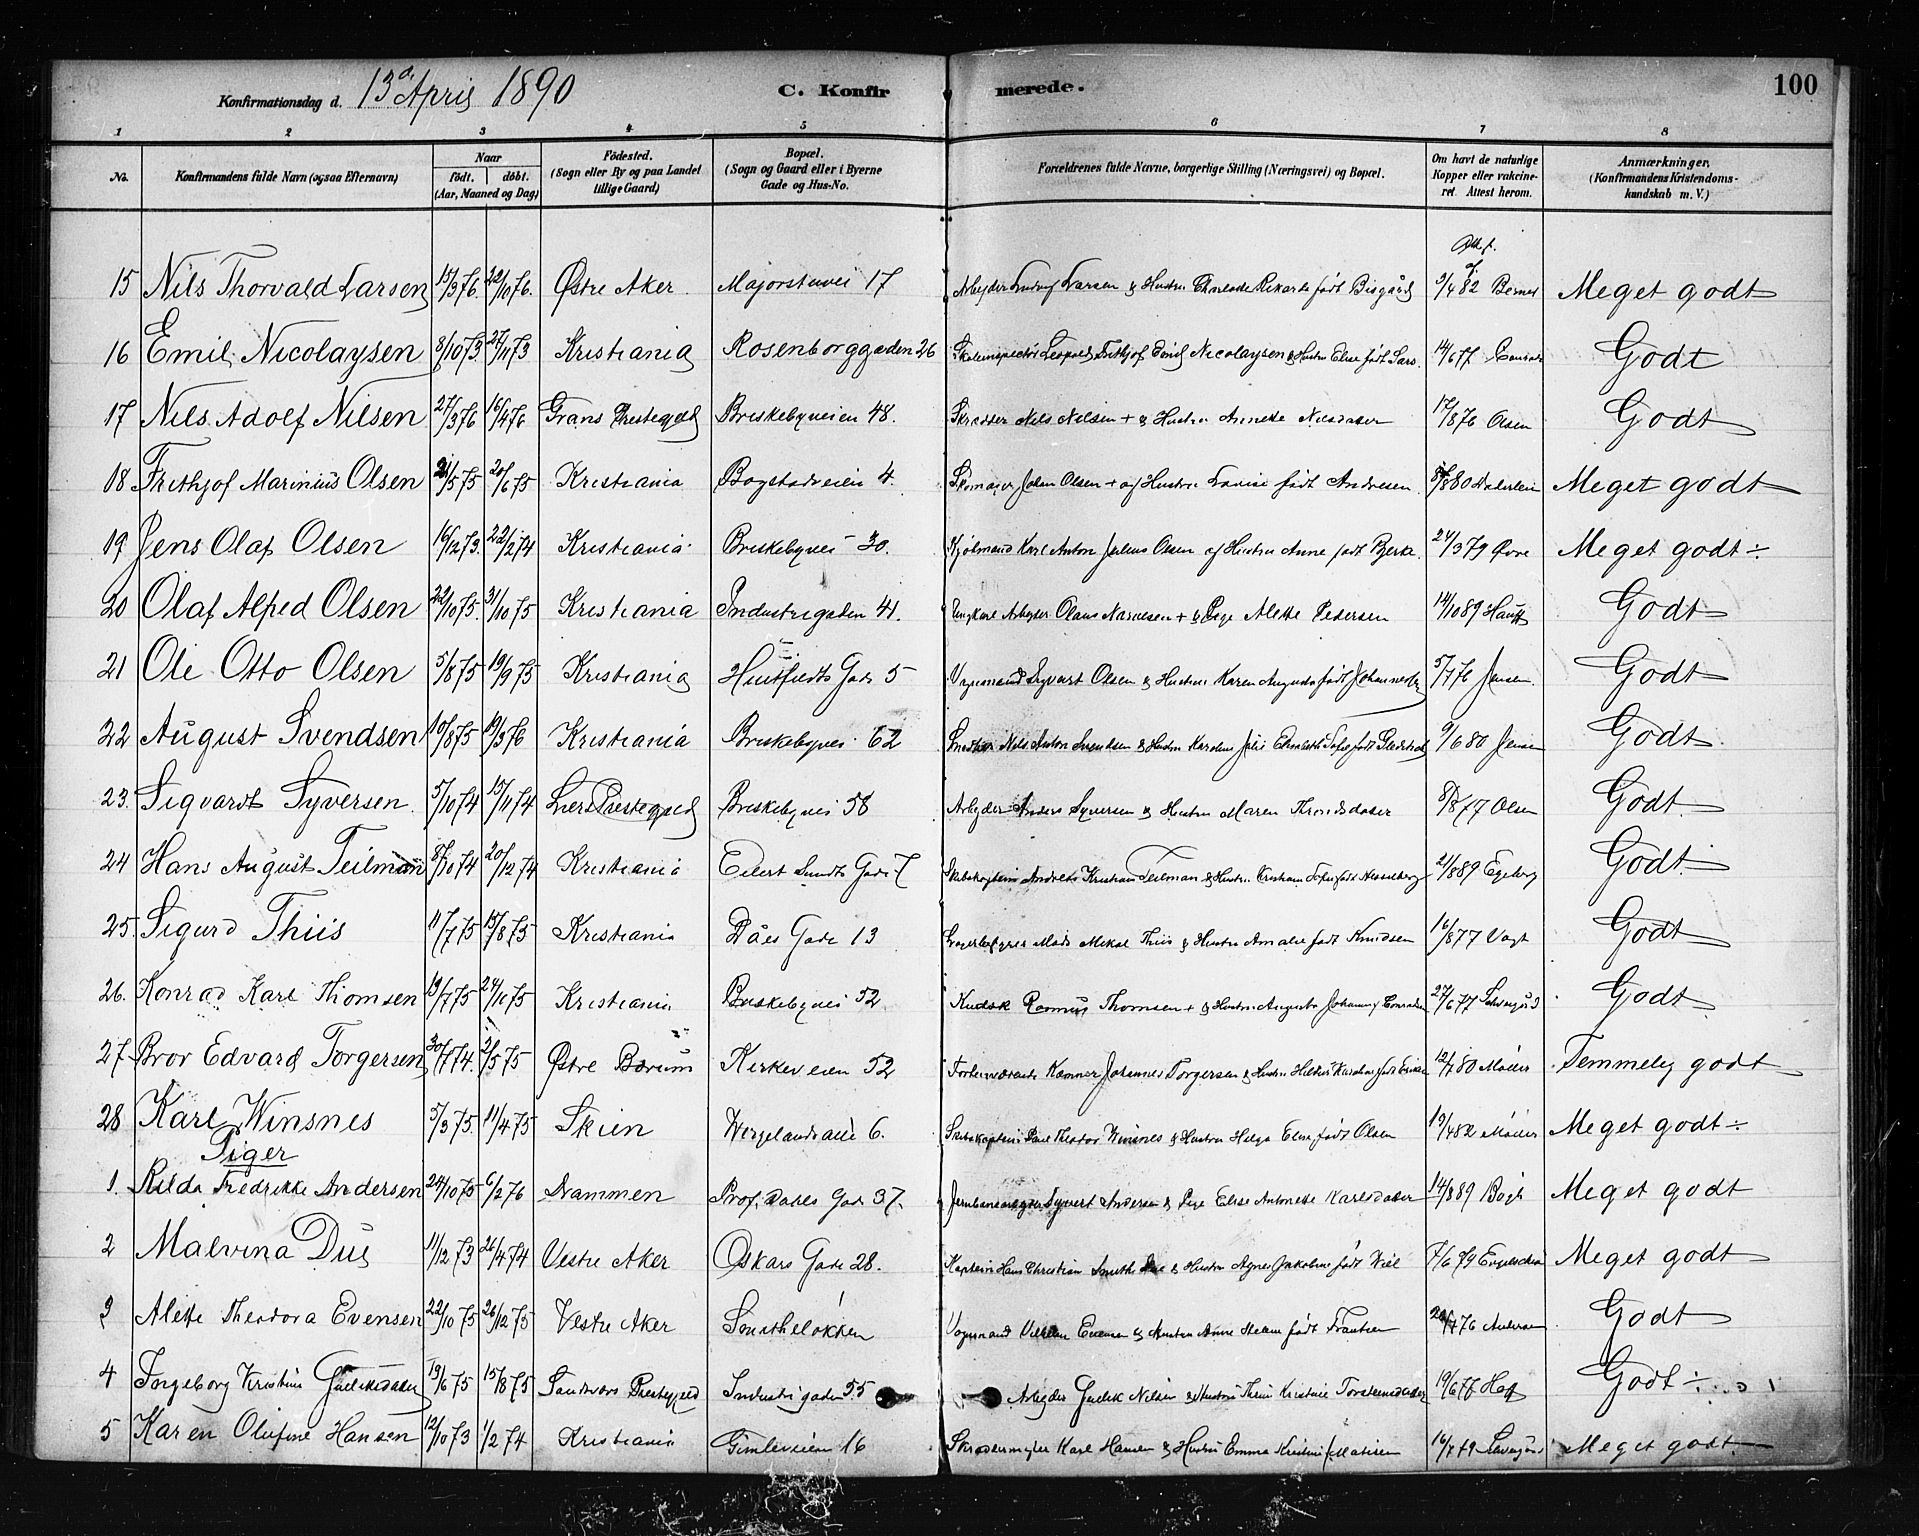 Konfirmationsdag d. 13de April 1890 C. Konfirmerede. 100
1 2 3 4 5 6 7 8
No. Konfirmandens fulde Navn (ogsaa Efternavn) Naar født. døbt. (Aar, Maaned og Dag) Fødested. (Sogn eller By og paa Landet tillige Gaard) Bopæl. (Sogn og Gaard eller i Byerne Gade og Hus-No. Forældrenes fulde Navne, borgerlige Stilling (Næringsvei) og Bopæl. Om havt de naturlige Kopper eller vakcineret. Attest herom. Anmærkninger. (Konfirmandens Kristendomskundskab m. V.)
15 Nils Thorvald Larsen 15/3 76. 22/10 76. Østre Aker Majorstuvei 17 Arbeider Ludvig Larsen & Hustru født Bisgård 3/4 82 Meget godt
16 Emil Nicolaysen 8/10 73 27/11 73 Kristiania Rosenborggaden 26 Skoleinspectør Leopold Frithjof Emil Nicolaysen & Hustru Elise født Sars. 14/6 77 Godt
17 Nils Adolf Nilsen 27/3 76 16/4 76 Grans Prestegjeld Briskebyveien 48. Skrædder Nils Nilsen + & Hustru Annette Nilsdatter 17/8 76 Olsen Godt
18 Frithjof Marinius Olsen 21/5 75 20/6 75 Kristiania Bogstadveien 4. Skomager Johan Olsen + og Hustru Lovise født Andresen 8/8 80 Meget godt
19 Jens Olaf Olsen 16/12 73. 22/2 74 Kristiania Briskebyvei 30. Karl Anton Julius Olsen og Hustru Anne født Bjerke 24/3 79 Øvre Meget godt ÷
20 Olaf Alfred Olsen 22/10 75. 31/10 75 Kristiania Industrigaden 41. Ungkarl Arbeider Olaus + & Pige Alette Pedersen 14/10 89 Godt
21 Ole Otto Olsen 5/8 75 19/9 75 Kristiania Huitfeldts Gade 5 Vognmand Syvert Olsen & Hustru Karen Augusta født 5/7 76 Jensen Godt
22 August Svendsen 10/8 75 19/3 76 Kristiania Briskebyvei 62 Nils Anton Svendsen & Hustru Karoline Elisabeth Sofie født 9/6 80 Jensen Godt
23. Sigvardt Syversen 5/10 74 15/11 74 Liers Prestegjeld Briskebyvei 58 Arbeider Anders Syversen & Hustru Maren Thronsdatter 8/8 77 Olsen Godt
24 Hans August Teilman 8/10 74 20/12 74 Kristiania Eilert Sundts Gade 7 Skibskaptein Andreas Kristian Teilman & Hustru Kristiane Sofie født Hesselberg 21/8 89 Egeberg Godt
25. Sigurd Thiis 11/7 75 15/8 75 Kristiania Dåes Gade 13 Mads Mikal Thiis & Hustru Amalie født Knudsen 16/8 77 Vogt Godt
26. Konrad Karl Thomsen 19/7 75 24/10 75 Kristiania Briskebyvei 52 Kudsk Rasmus Thomsen + & Hustru Augusta Johanne 27/6 77 Godt
27 Bror Edvard Torgersen 30/7 74. 2/5 75 Østre Bærum Kirkeveien 52 Forhenværende Johannes Torgersen & Hustru Karoline 12/7 80 Møller Temmelig godt
28 Karl Winsnes 5/3 75. 11/4 75 Skien Wergelandsalle 6. Skibskaptein Theodor Winsnes & Hustru Helga Elise født Olsen 19/4 82 Møller Meget godt ÷
Piger
1. Hilda Fredrikke Andersen 24/10 75 6/2 76 Drammen Prof. Dahls Gade 37. Syvert Andersen & Pige Elise Antonette Karlsdatter 14/8 89 Bøgh Meget godt
2 Malvina Due 11/12 73 26/4 74 Vestre Aker Oskars Gade 28. Kaptein Hans Christian Smith Due & Hustru Agnes Jakobine født Wiel 7/6 79 Meget godt
3 Alette Theodora Evensen 22/10 75 26/12 75 Vestre Aker Smitheløkken Vognmand Vilhelm Evensen & Hustru Anne Helene født Frantsen 20/7 76 Andersen Godt
4 Torgeborg Kristine Gulliksdatter 19/6 75 15/8 75 Sandsvær Prestegjeld Industrigaden 55 Arbeider Gullik Nilsen & Hustru Kristine Torstensdatter 19/6 77 Godt ÷
5 Karen Olufine Hansen 12/10 73 1/2 74 Kristiania Gimleveien 16 Skræddermester Karl Hansen & Hustru Emma Kristine f. Matisen 16/7 79 Meget godt.